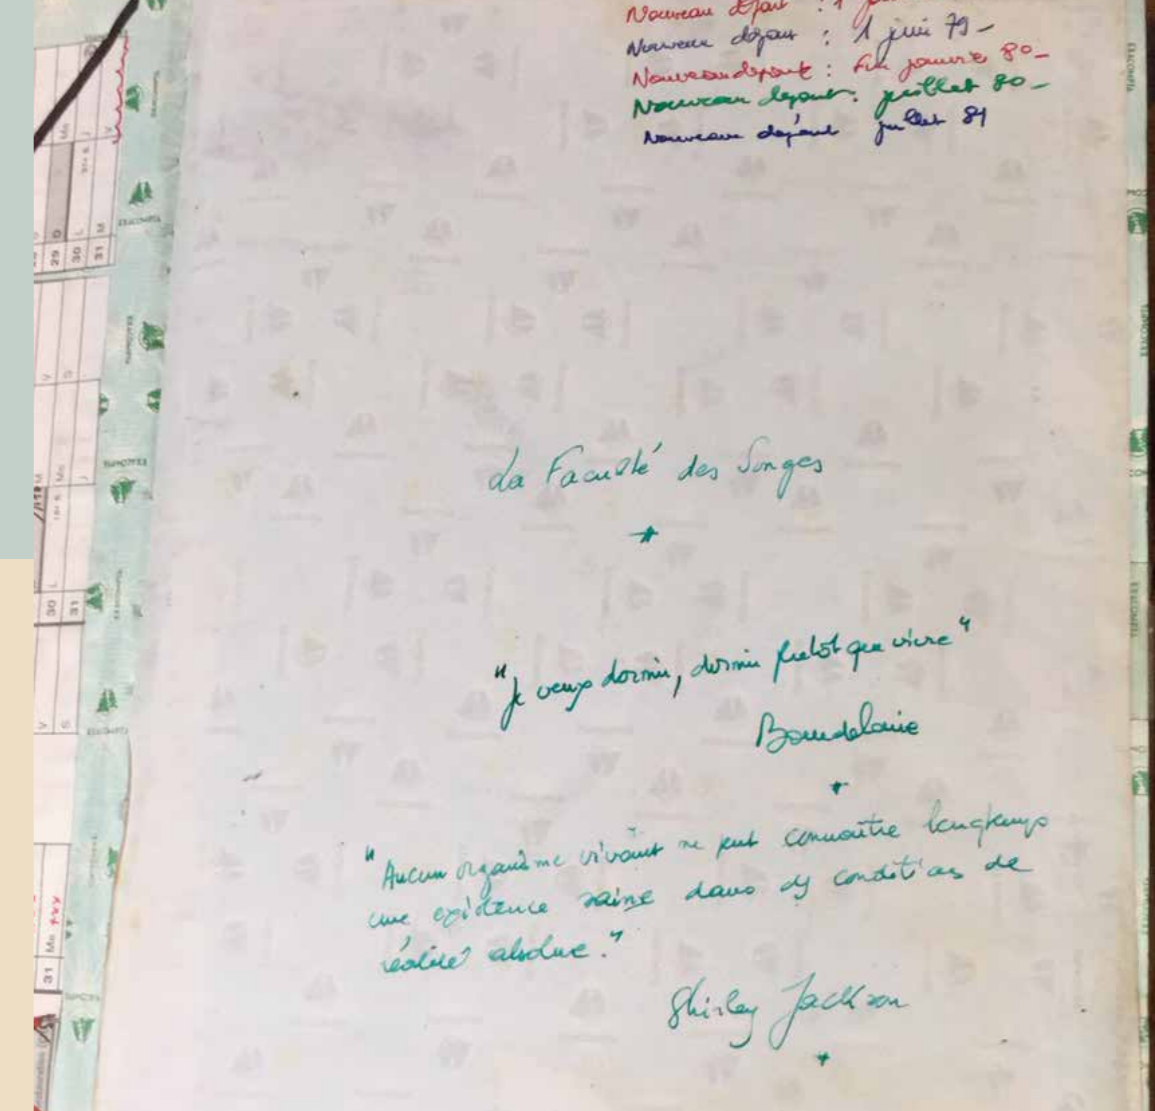 Nouveau départ : 1
Nouveau départ : 1 juin 79 -
Nouveau départ : Fin janvier 80 -
Nouveau départ : juillet 80 -
Nouveau départ juillet 81
La Faculté des Songes
*
"Je veux dormir, dormir plutôt que vivre"
Baudelaire
*
"Aucun organisme vivant ne peut connaître longtemps
une existence saine dans des conditions de
réalité absolue."
Shirley Jackson
*
EXACOMPTA
29 D
30 L
31 M
30 L
31
31 Me